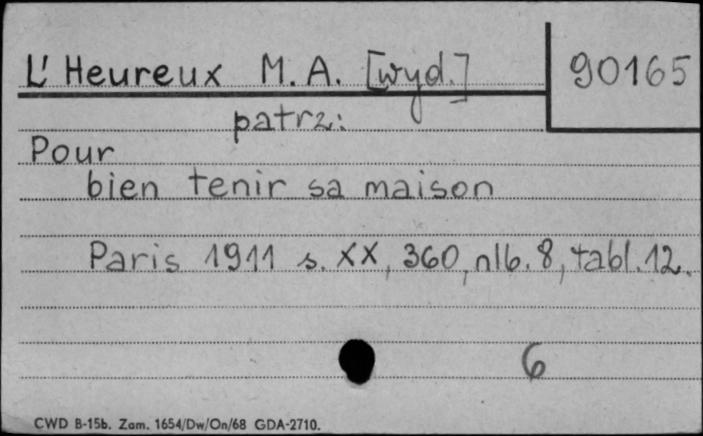 L'Heureux M. A. [wyd.] 90165
patrz:
Pour
bien tenir sa maison
Paris 1911 s. XX, 360, nlb. 8, tabl. 12.
6
CWD B-15b. Zam. 1654/Dw/On/68 GDA-2710.